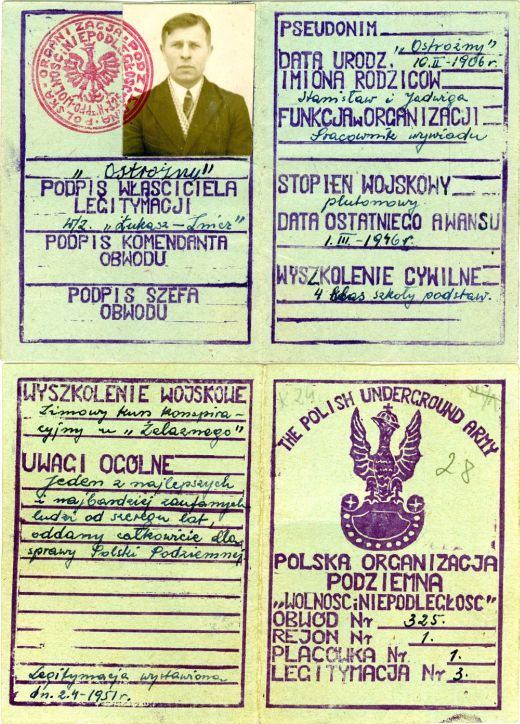 ORGANIZACJA
PSEUDONIM
"Ostrożny"
DATA URODZ. 10.II-1906r.
IMIONA RODZICÓW
Stanisław i Jadwiga
FUNKCJA W ORGANIZACJI
Pracownik wywiadu
STOPIEŃ WOJSKOWY
plutonowy
DATA OSTATNIEGO AWANSU
1.III-1946r.
WYSZKOLENIE CYWILNE
4 klas szkoły podstaw.
"Ostrożny"
PODPIS WŁAŚCICIELA
LEGITYMACJI
w/z. "Łukasz-Zmicz"
PODPIS KOMENDANTA
OBWODU
PODPIS SZEFA
OBWODU
WYSZKOLENIE WOJSKOWE
Zimowy kurs konspira-
cyjny u "Żelaznego"
UWAGI OGÓLNE
Jeden z najlepszych
i najbardziej zaufanych
ludzi od szeregu lat,
oddany całkowicie dla
sprawy Polski Podziemnej
Legitymacja wystawiona
dn. 2.4-1951r.
THE POLISH UNDERGROUND ARMY
28
POLSKA ORGANIZACJA
PODZIEMNA
"WOLNOŚĆ i NIEPODLEGŁOŚĆ"
OBWÓD Nr 325.
REJON Nr 1.
PLACÓWKA Nr 1.
LEGITYMACJA Nr 3.